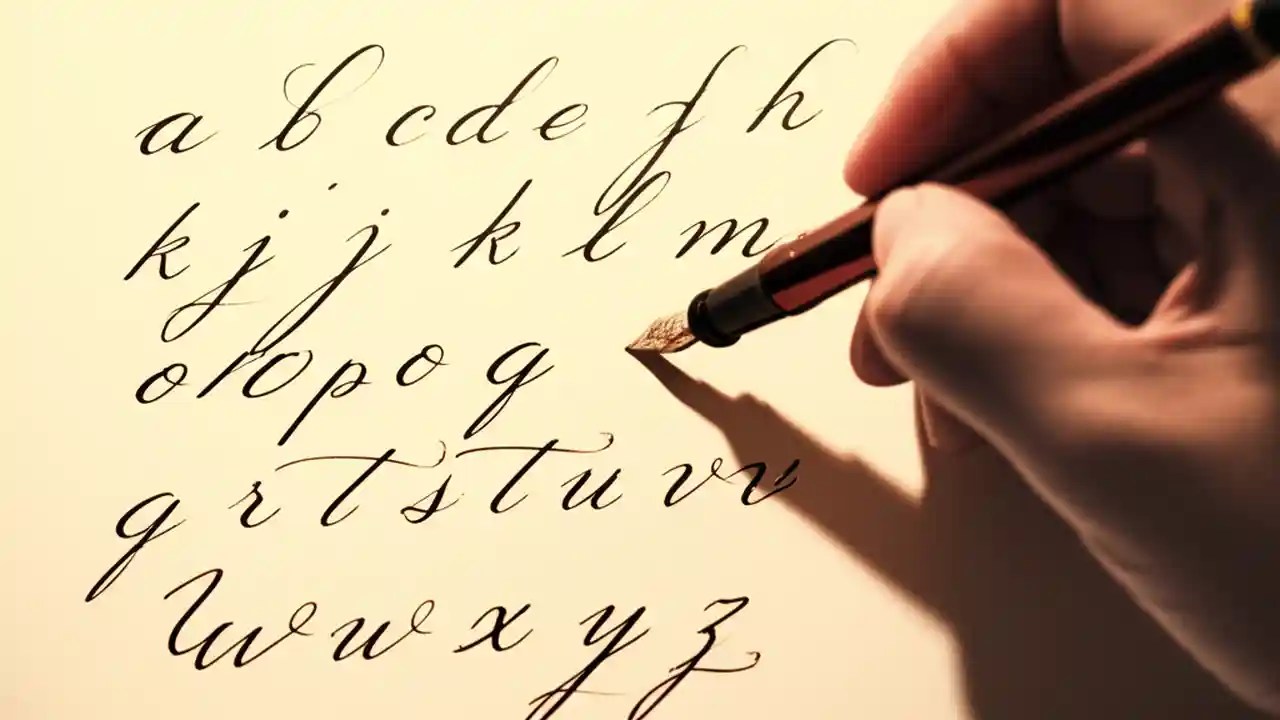 a b c d e f h
k j j k l m
o r o p o q
g r t s t u v v
W w x y z